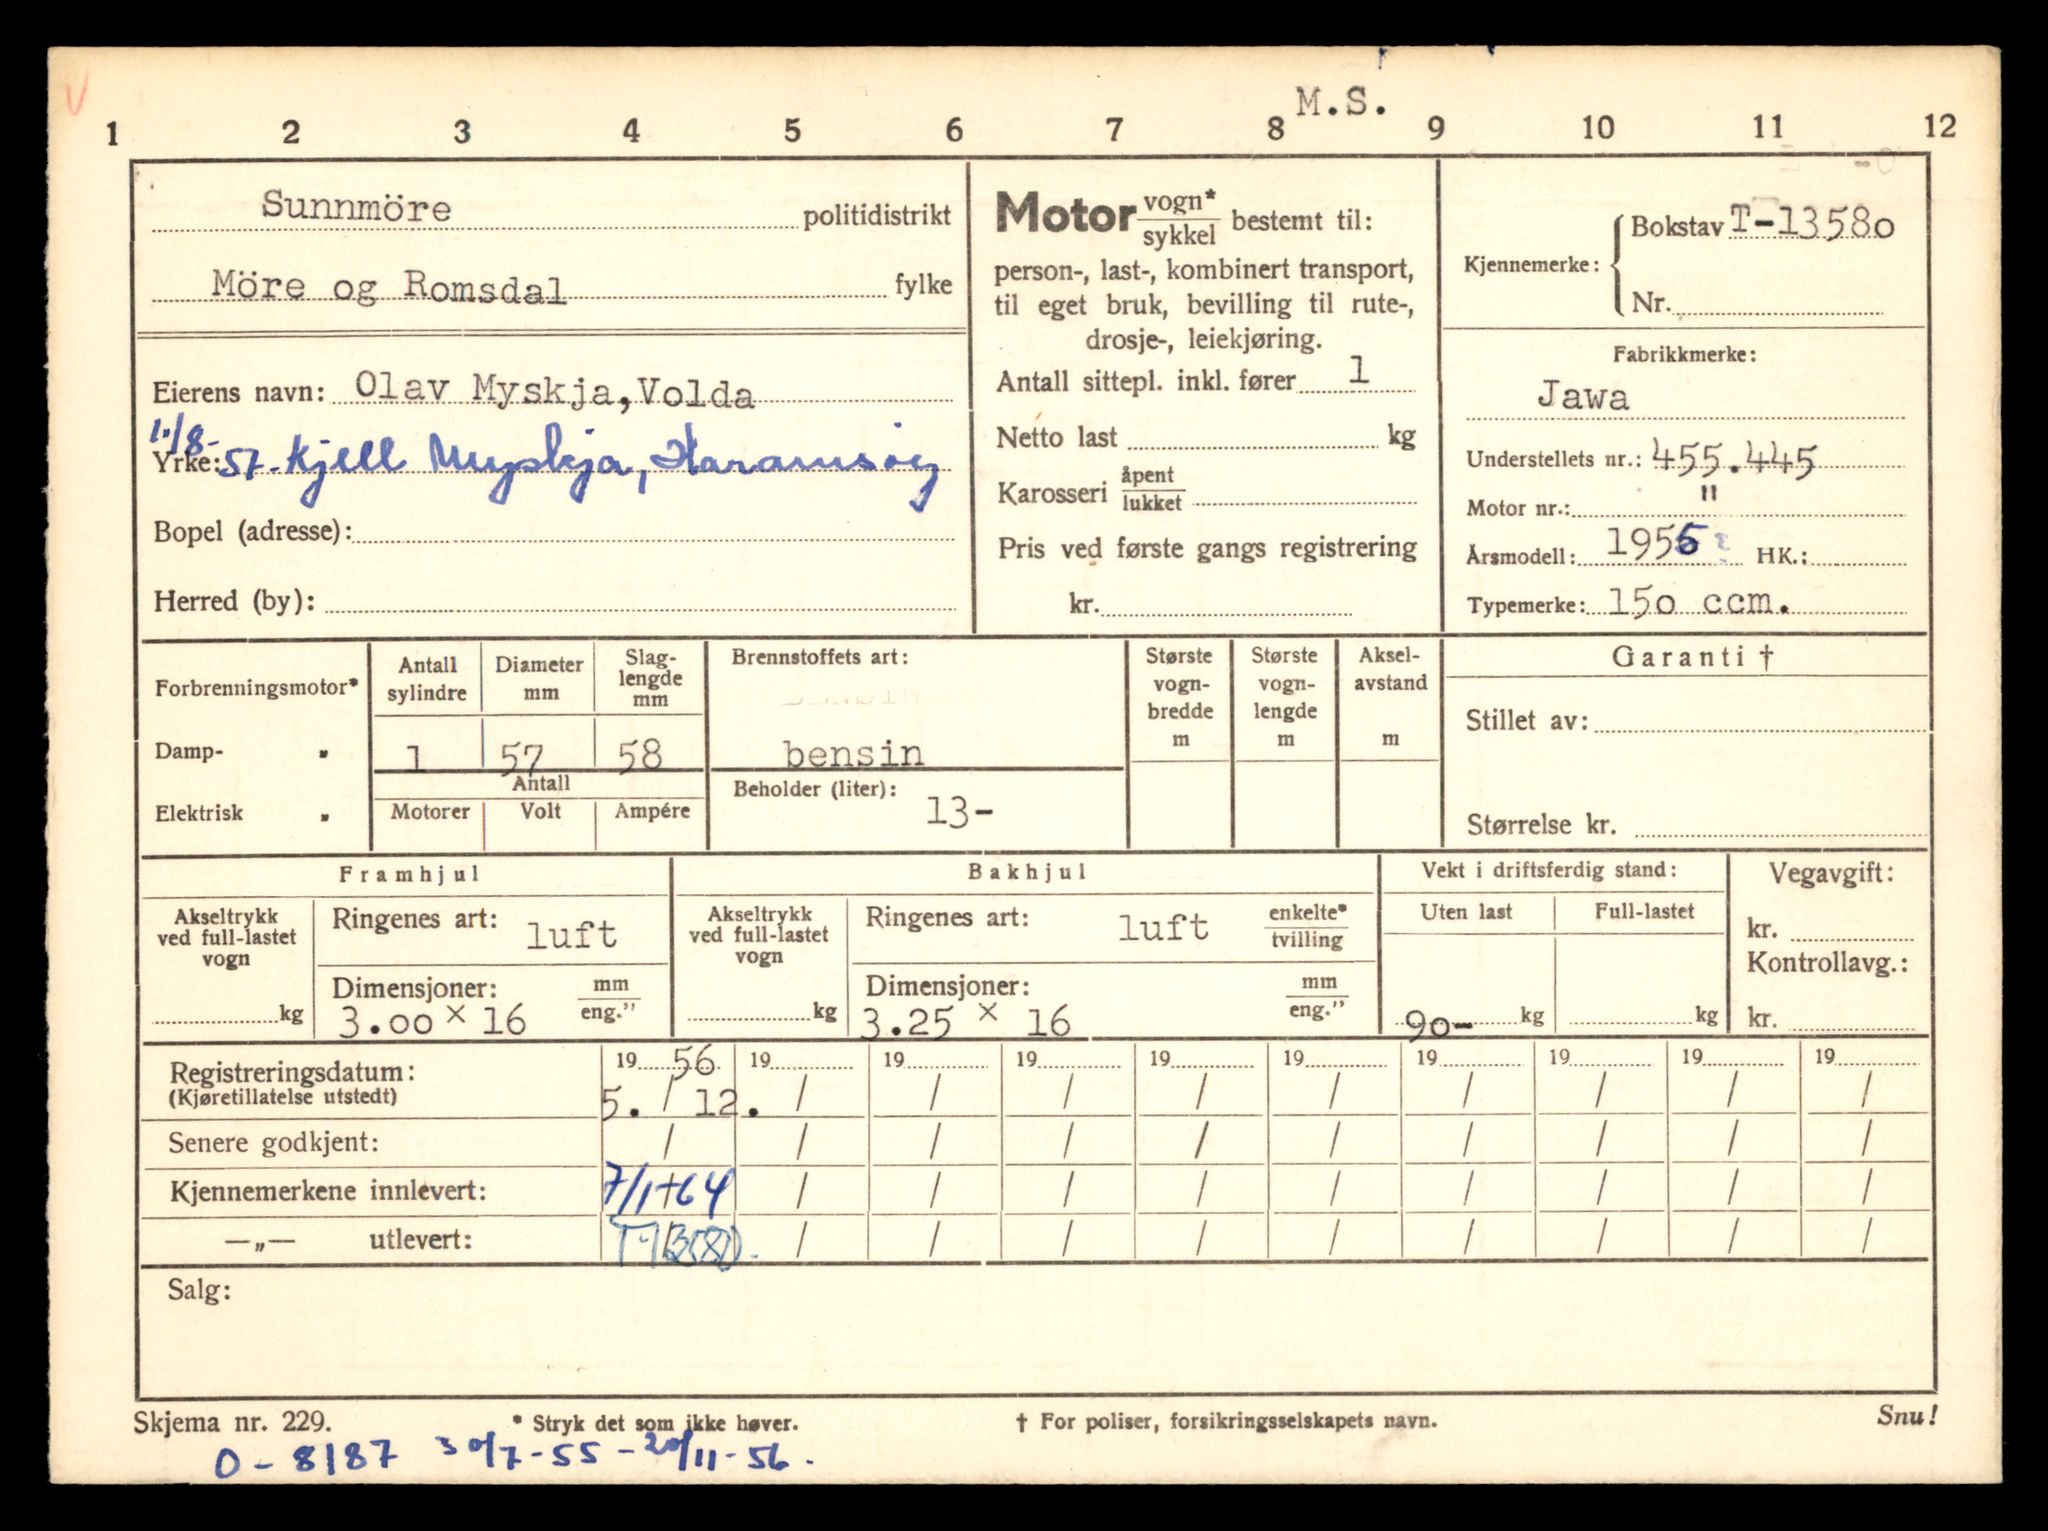 V
M.S.
1 2 3 4 5 6 7 8 9 10 11 12
Sunnmöre politidistrikt
Möre og Romsdal fylke
Eierens navn: Olav Myskja, Volda
1./8-
Yrke: 57. Kjell Myskja, Haramsøy
Bopel (adresse):
Herred (by):
Motor vogn* / sykkel bestemt til:
person-, last-, kombinert transport,
til eget bruk, bevilling til rute-,
drosje-, leiekjøring.
Antall sittepl. inkl. fører 1
Netto last kg
Karosseri åpent / lukket
Pris ved første gangs registrering
kr.
Kjennemerke: Bokstav T-13580
Nr.
Fabrikkmerke:
Jawa
Understellets nr.: 455.445
Motor nr.: "
Årsmodell: 1955 HK.:
Typemerke: 150 ccm.
Forbrenningsmotor*
Damp- "
Elektrisk "
Antall sylindre
1
Diameter mm
57
Slag-
lengde
mm
58
Antall
Motorer Volt Ampére
Brennstoffets art:
bensin
Beholder (liter): 13-
Største
vogn-
bredde
m
Største
vogn-
lengde
m
Aksel-
avstand
m
Garanti †
Stillet av:
Størrelse kr.
Framhjul
Akseltrykk
ved full-lastet
vogn
kg
Ringenes art: luft
Dimensjoner: mm / eng."
3.00 x 16
Bakhjul
Akseltrykk
ved full-lastet
vogn
kg
Ringenes art: luft enkelte* / tvilling
Dimensjoner: mm / eng."
3.25 x 16
Vekt i driftsferdig stand:
Uten last Full-lastet
90- kg kg
Vegavgift:
kr.
Kontrollavg.:
kr.
Registreringsdatum: 19 56 19 19 19 19 19 19 19 19 19
(Kjøretillatelse utstedt) 5. / 12. / / / / / / / / /
Senere godkjent: / / / / / / / / / /
Kjennemerkene innlevert: 7/1-64 / / / / / / / / /
—„— utlevert: T-13580. / / / / / / / / /
Salg:
Skjema nr. 229. * Stryk det som ikke høver. † For poliser, forsikringsselskapets navn. Snu!
O-8187 30/7-55 - 20/11-56.